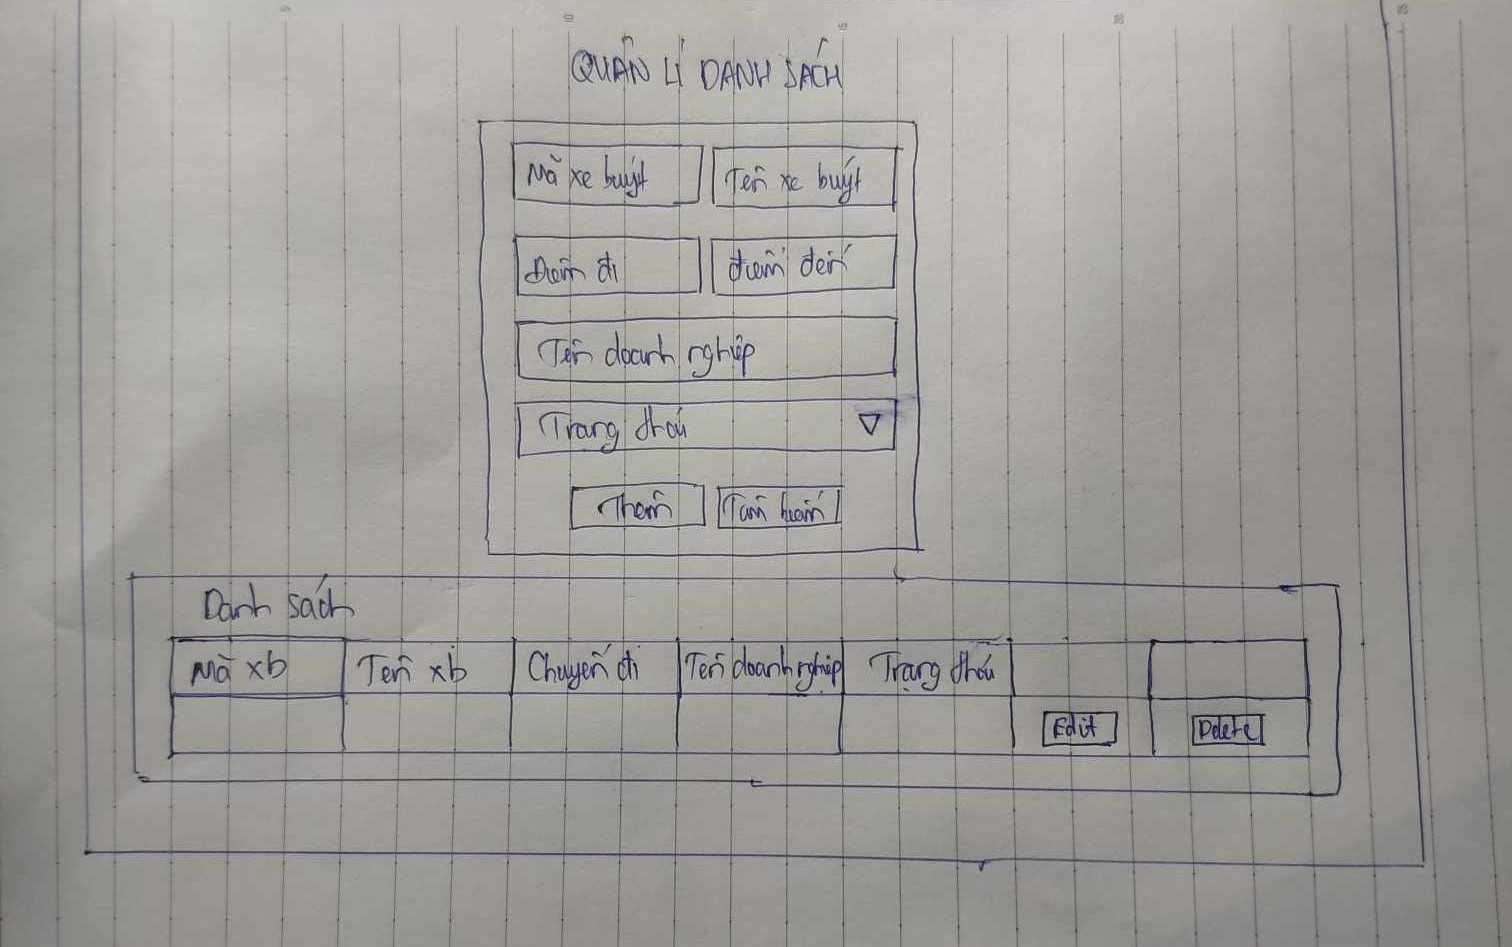 QUẢN LÍ DANH SÁCH
Mã xe buýt Tên xe buýt
Điểm đi điểm đến
Tên doanh nghiệp
Trạng thái
Thêm Tìm kiếm
Danh sách
Mã xb Tên xb Chuyến đi Tên doanh nghiệp Trạng thái
Edit Delete